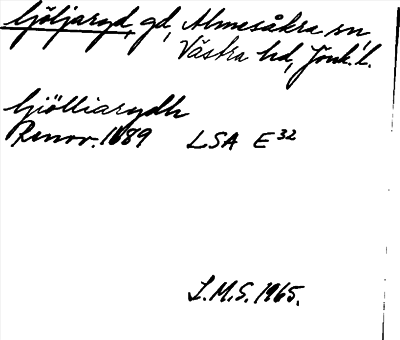 Ljöljaryd, gd, Almesåkra sn,
Västra hd, Jönk. l.
Ljölliarydh
Renov. 1689 LSA E 32
L.M.S. 1965.